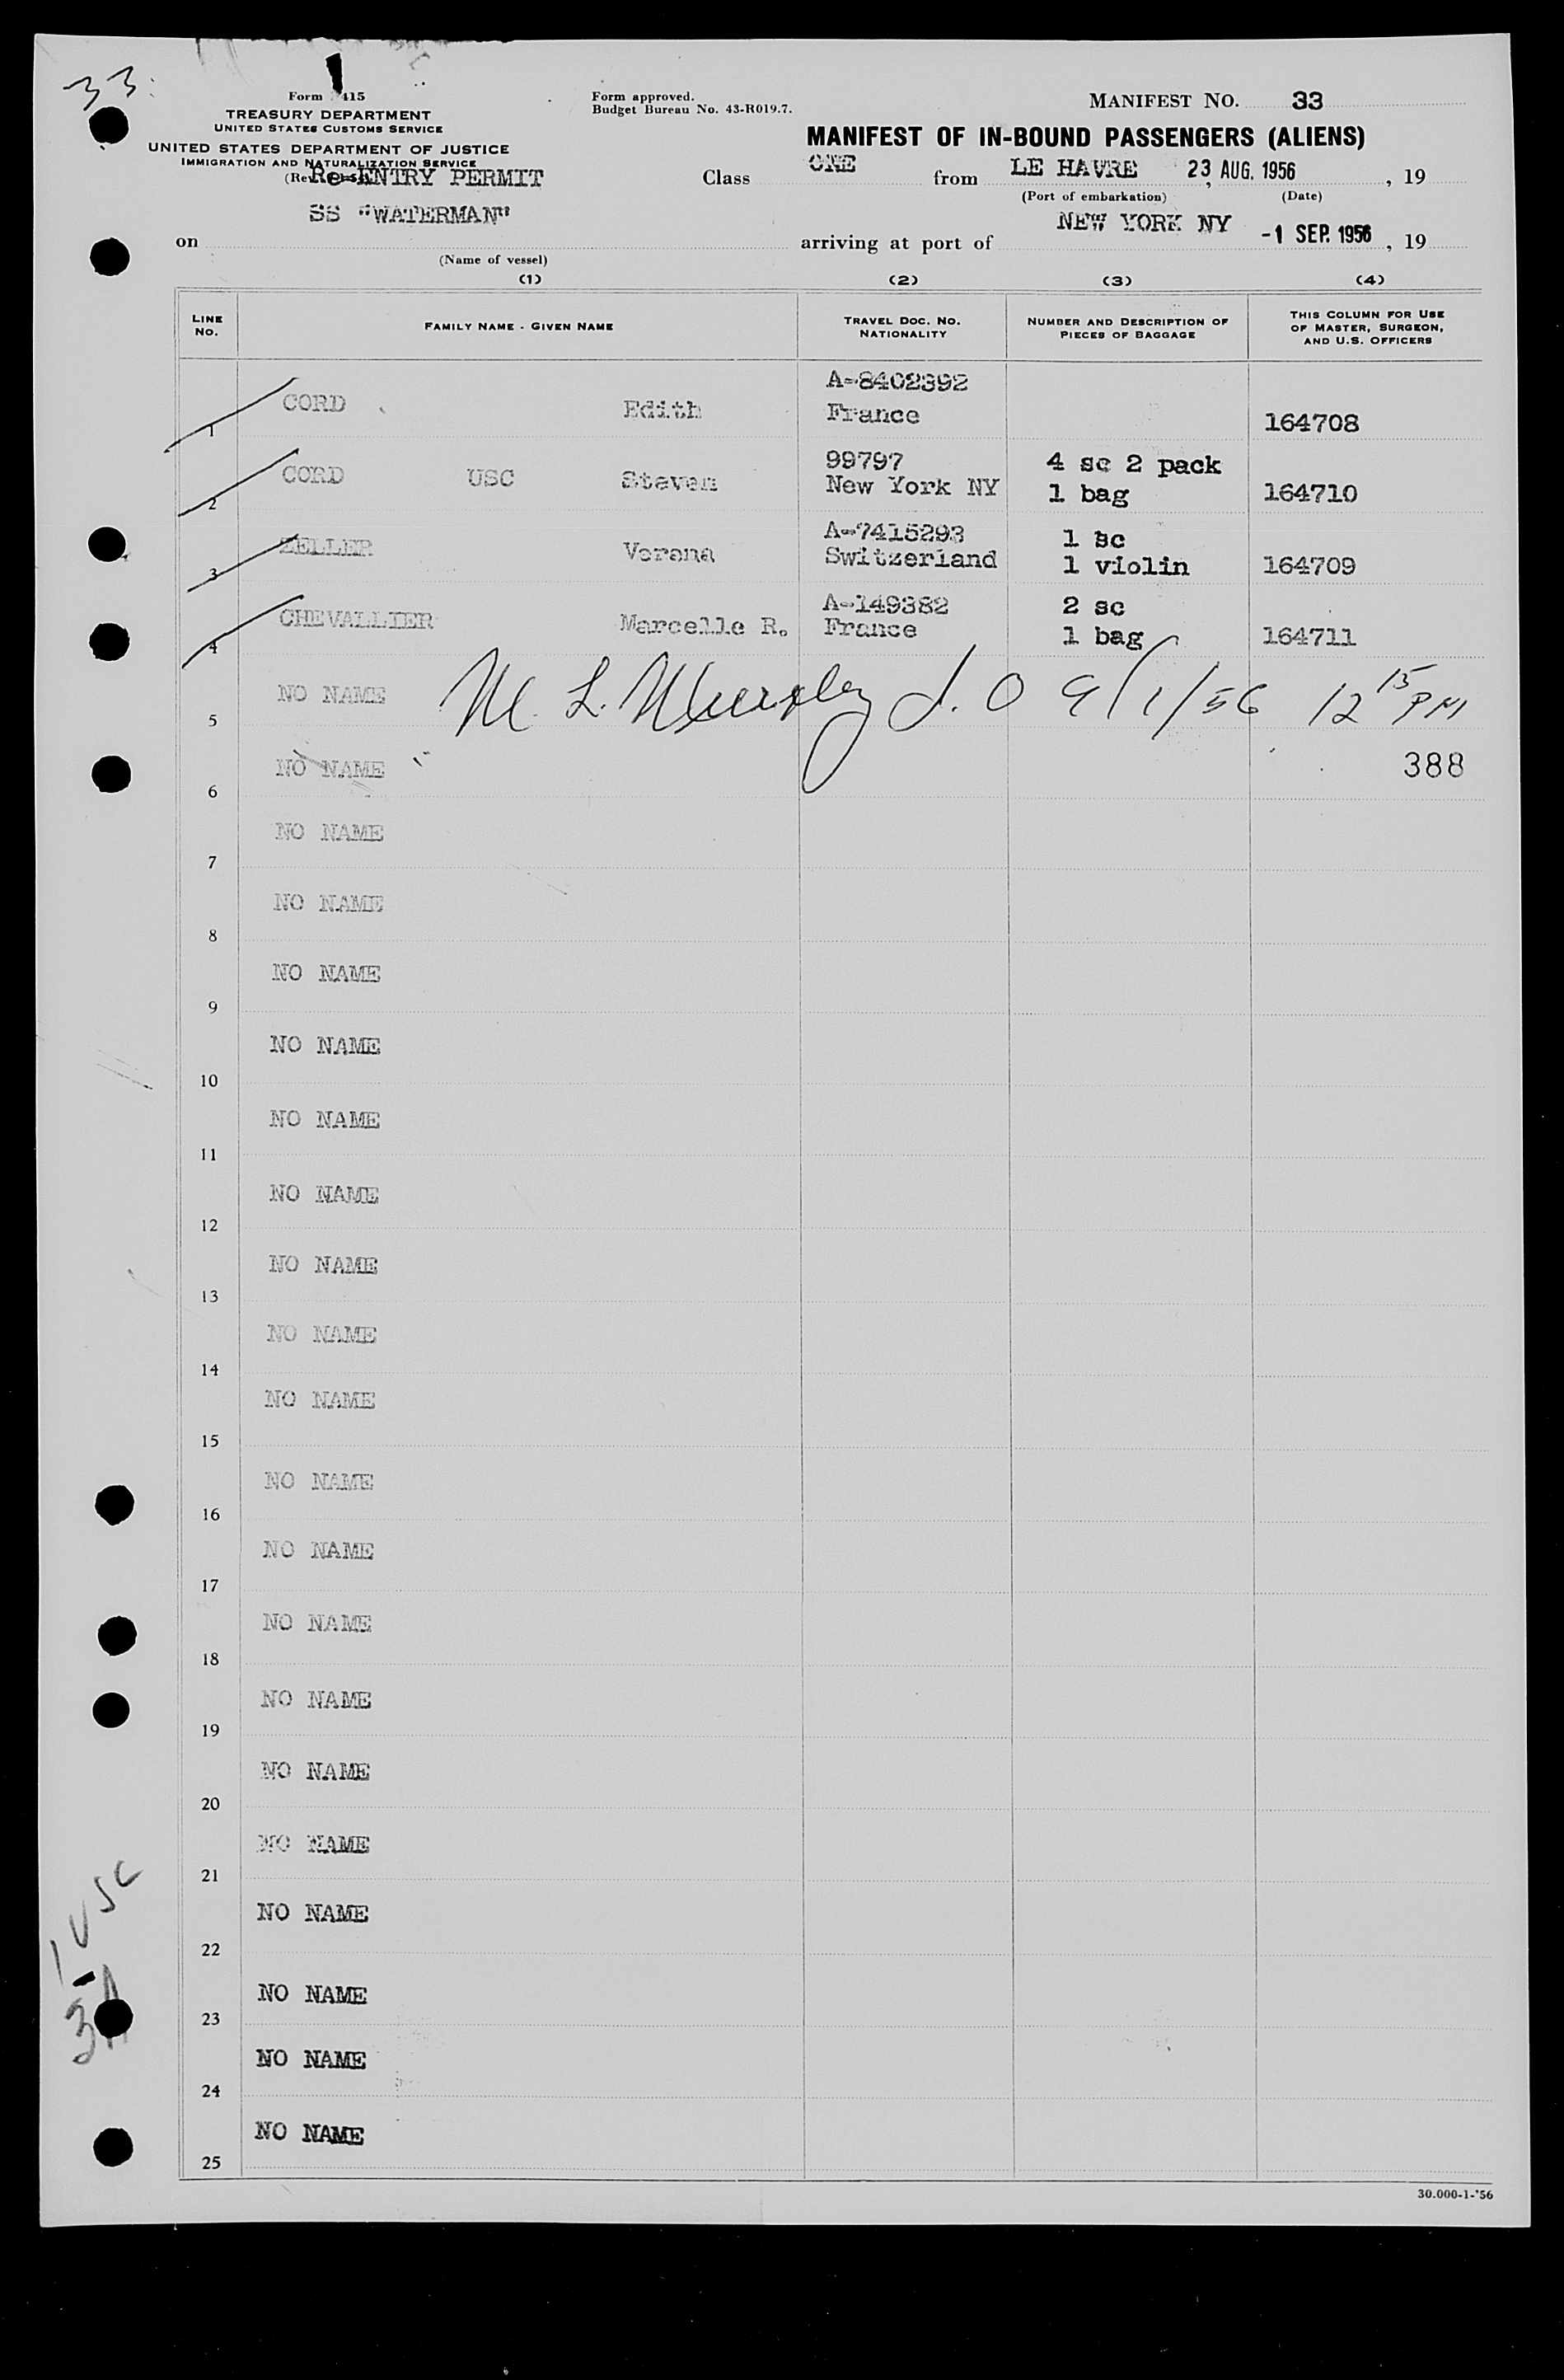 33
Form 415
TREASURY DEPARTMENT
UNITED STATES CUSTOMS SERVICE
UNITED STATES DEPARTMENT OF JUSTICE
IMMIGRATION AND NATURALIZATION SERVICE
(Re
Re-ENTRY PERMIT
Form approved.
Budget Bureau No. 43-R019.7.
MANIFEST NO. 33
MANIFEST OF IN-BOUND PASSENGERS (ALIENS)
Class ONE from LE HAVRE 23 AUG. 1956, 19
(Port of embarkation) (Date)
on SS "WATERMAN" arriving at port of NEW YORK NY -1 SEP. 1956, 19
(Name of vessel)
(1) (2) (3) (4)
LINE No. FAMILY NAME - GIVEN NAME TRAVEL DOC. NO. NATIONALITY NUMBER AND DESCRIPTION OF PIECES OF BAGGAGE THIS COLUMN FOR USE OF MASTER, SURGEON, AND U.S. OFFICERS
A-8402392
1 CORD Edith France 164708
99797 4 sc 2 pack
2 CORD USC Steven New York NY 1 bag 164710
A-7415293 1 sc
3 ZELLER Verena Switzerland 1 violin 164709
A-149382 2 sc
4 CHEVALLIER Marcelle R. France 1 bag 164711
5 NO NAME M. L. 9/1/56 12 15 PM
6 NO NAME 388
7 NO NAME
8 NO NAME
9 NO NAME
10 NO NAME
11 NO NAME
12 NO NAME
13 NO NAME
14 NO NAME
15 NO NAME
16 NO NAME
17 NO NAME
18 NO NAME
19 NO NAME
20 NO NAME
21 NO NAME
22 NO NAME
23 NO NAME
24 NO NAME
25 NO NAME
1 USC
3A
30.000-1-'56